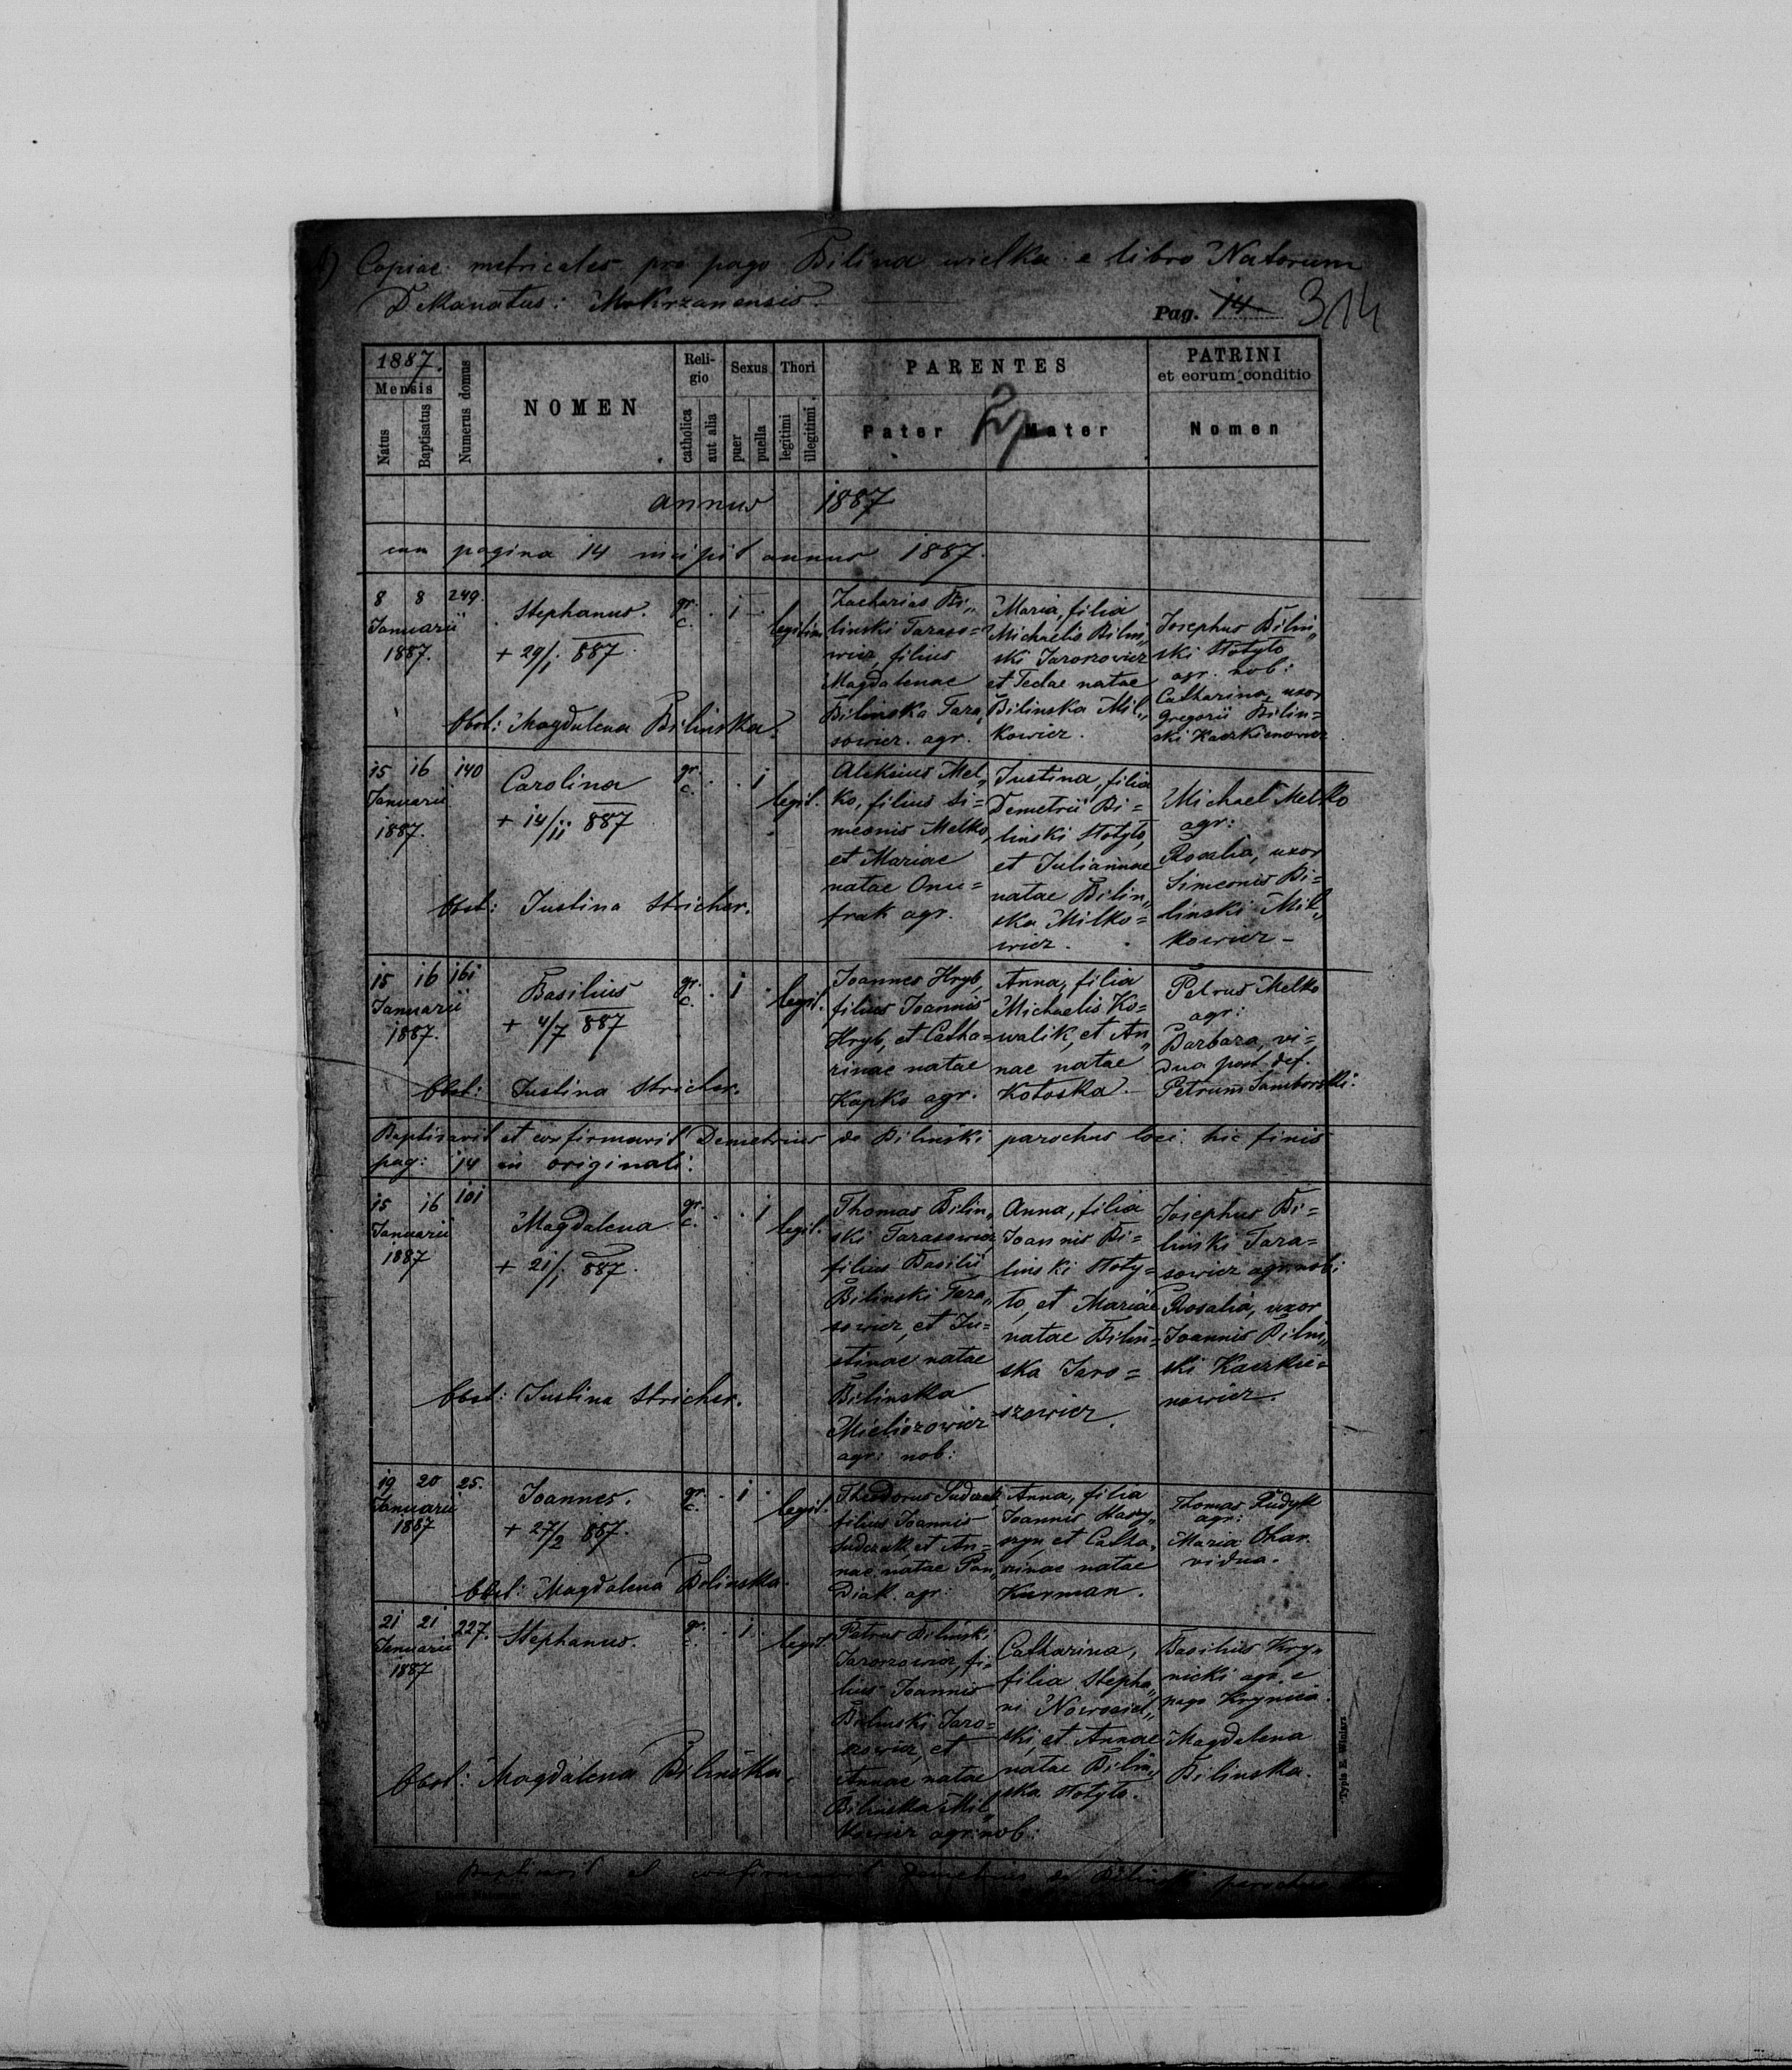 Copiae metricales pro pago Bilina wielka e libro Natorum
Dekanatus: Mokrzanensis.
Pag. 14 314
1887.
Mensis
Natus
Baptisatus
Numerus domus
NOMEN
Religio
catholica
aut alia
Sexus
puer
puella
Thori
legitimi
illegitimi
PARENTES
Pater
Mater
PATRINI
et eorum conditio
Nomen
annus 1887
cum pagina 14 incipit annus 1887.
8 8 249.
Januarii
1887.
Stephanus.
+ 29/i 887.
gr. c. . i
legitim
Zacharias Bi„
linski Taraso=
wicz, filius
Magdalenae
Bilinska Tara„
sowicz. agr.
Maria, filia
Michaelis Bilin„
ski Jaroszowicz
et Teclae natae
Bilinska Mil„
kowicz.
Josephus Bilin„
ski Stotyto
agr. nob:
Catharina, uxor
Gregorii Bilin=
ski Kaczkienowicz
Obst: Magdalena Bilinska.
15 16 140
Januarii
1887.
Carolina
+ 14/ii 887
gr. c. . . i
legit.
Aleksius Mel„
ko, filius Si=
meonis Melko,
et Mariae
natae Onu=
frak agr.
Justina, filia
Demetrii Bi=
linski Stotyto,
et Juliannae
natae Bilin„
ska Milko=
wicz.
Michael Melko
agr:
Rosalia, uxor
Simeonis Bi=
linski Mil„
kowicz -
Obst: Justina Stricher.
15 16 161
Januarii
1887.
Basilius
+ 4/7 887
gr. c. . i .
legit.
Joannes Hryb,
filius Joannis
Hryb, et Catha=
rinae natae
Kapko agr.
Anna, filia
Michaelis Ko=
walik, et An„
nae natae
Kotoska.
Petrus Melko
agr:
Barbara, vi=
dua post def.
Petrum Samborski.
Obst: Justina Stricher.
Baptisavit et confirmavit Demetrius de Bilinski parochus loci. hic finis
pag: 14 in originali.
15 16 101
Januarii
1887
Magdalena
+ 21/i 887.
gr. c. . . i
legit.
Thomas Bilin„
ski Tarasowicz
filius Basilii
Bilinski Tara„
sowicz, et Ju=
stinae natae
Bilinska
Mieliszowicz
agr: nob:
Anna, filia
Joannis Bi=
linski Stoty=
to, et Mariae
natae Bilin=
ska Jaro=
szowicz.
Josephus Bi=
linski Tara=
sowicz agr. nob:
Rosalia, uxor
Joannis Bilin„
ski Kaczkie=
nowicz.
Obst: Justina Stricher.
19 20 25.
Januarii
1887
Joannes.
+ 27/2 887.
gr. c. . i .
legit.
Theodorus Sudczak
filius Joannis
Sudczak, et An=
nae natae Pan„
diak. agr:
Anna, filia
Joannis
et Catha„
rinae natae
Kurman.
Thomas Rudyk
agr:
Maria Ohar
vidua.
Obst: Magdalena Bilinska.
21 21 227.
Januarii
1887
Stephanus.
gr. c. . i .
legit.
Petrus Bilinski
Jaroszowicz, fi=
lius Joannis
Bilinski Jaro=
szowicz, et
Annae natae
Bilinska Mil„
kowicz agr. nob:
Catharina,
filia Stepha„
ni Nowosiel„
ski, et Annae
natae Bilin„
ska Stotyto.
Basilius Kry„
nicki agr. e
pago Krynica.
Magdalena
Bilinska.
Obst: Magdalena Bilinska.
Baptisavit et confirmavit Demetrius de Bilinski parochus
Typis E. Winiarz